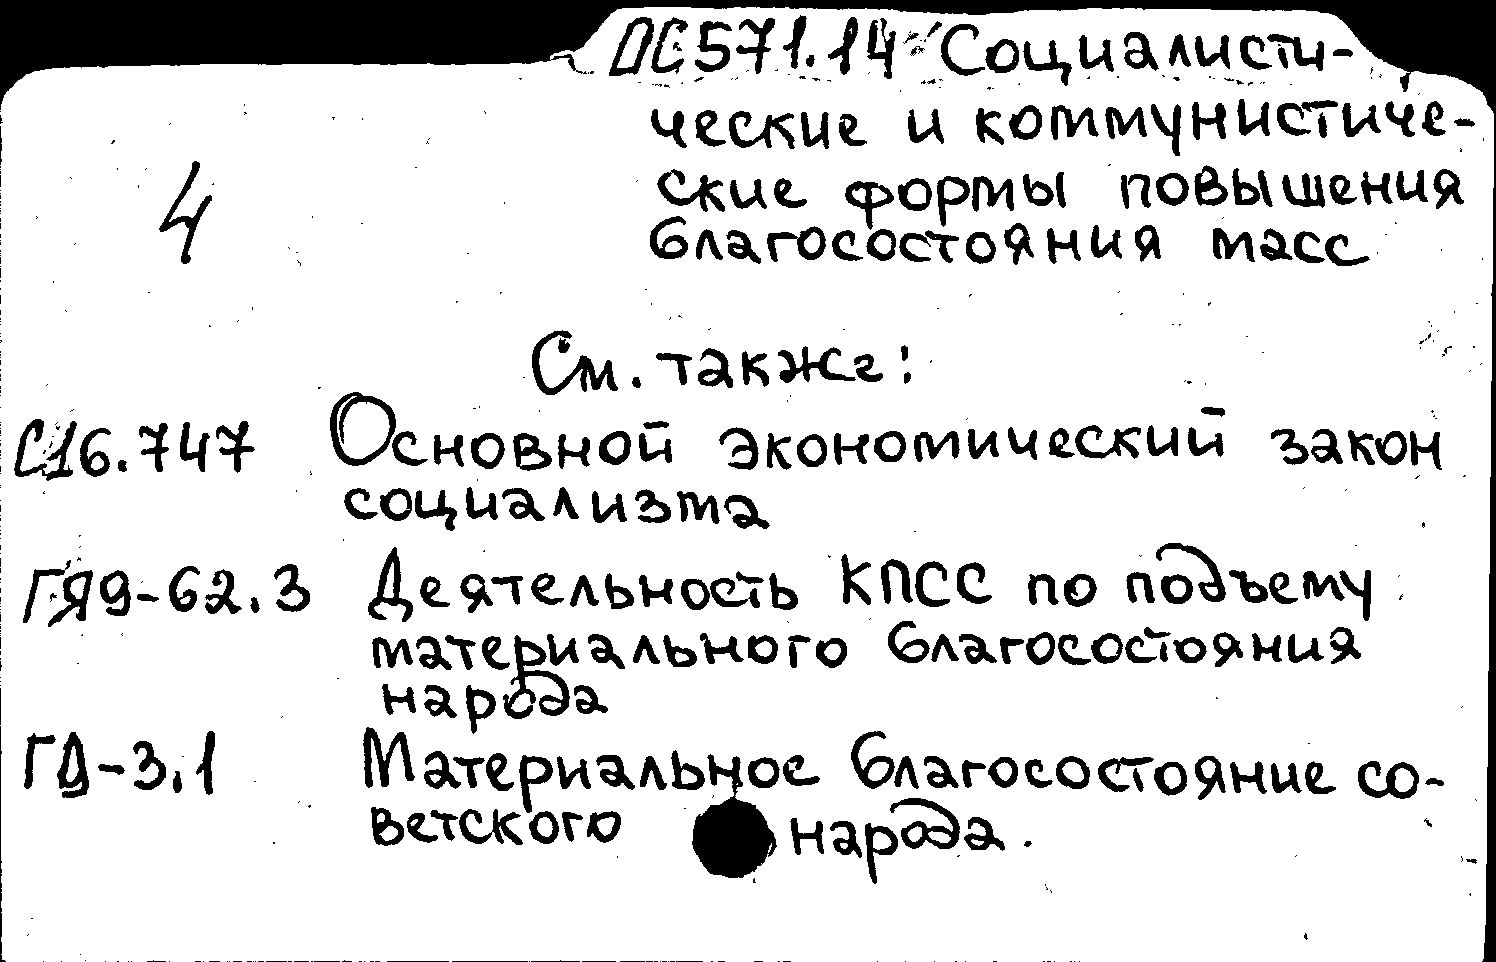 ДС571.14 Социалисти-
ческие и коммунистиче-
ские формы повышения
4
благосостояния масс
См. также:
С16.747 Основной экономический закон
социализма
ГЯ9-62.3 Деятельность КПСС по подъему
материального благосостояния
народа
ГД-3.1 Материальное благосостояние со-
ветского народа.